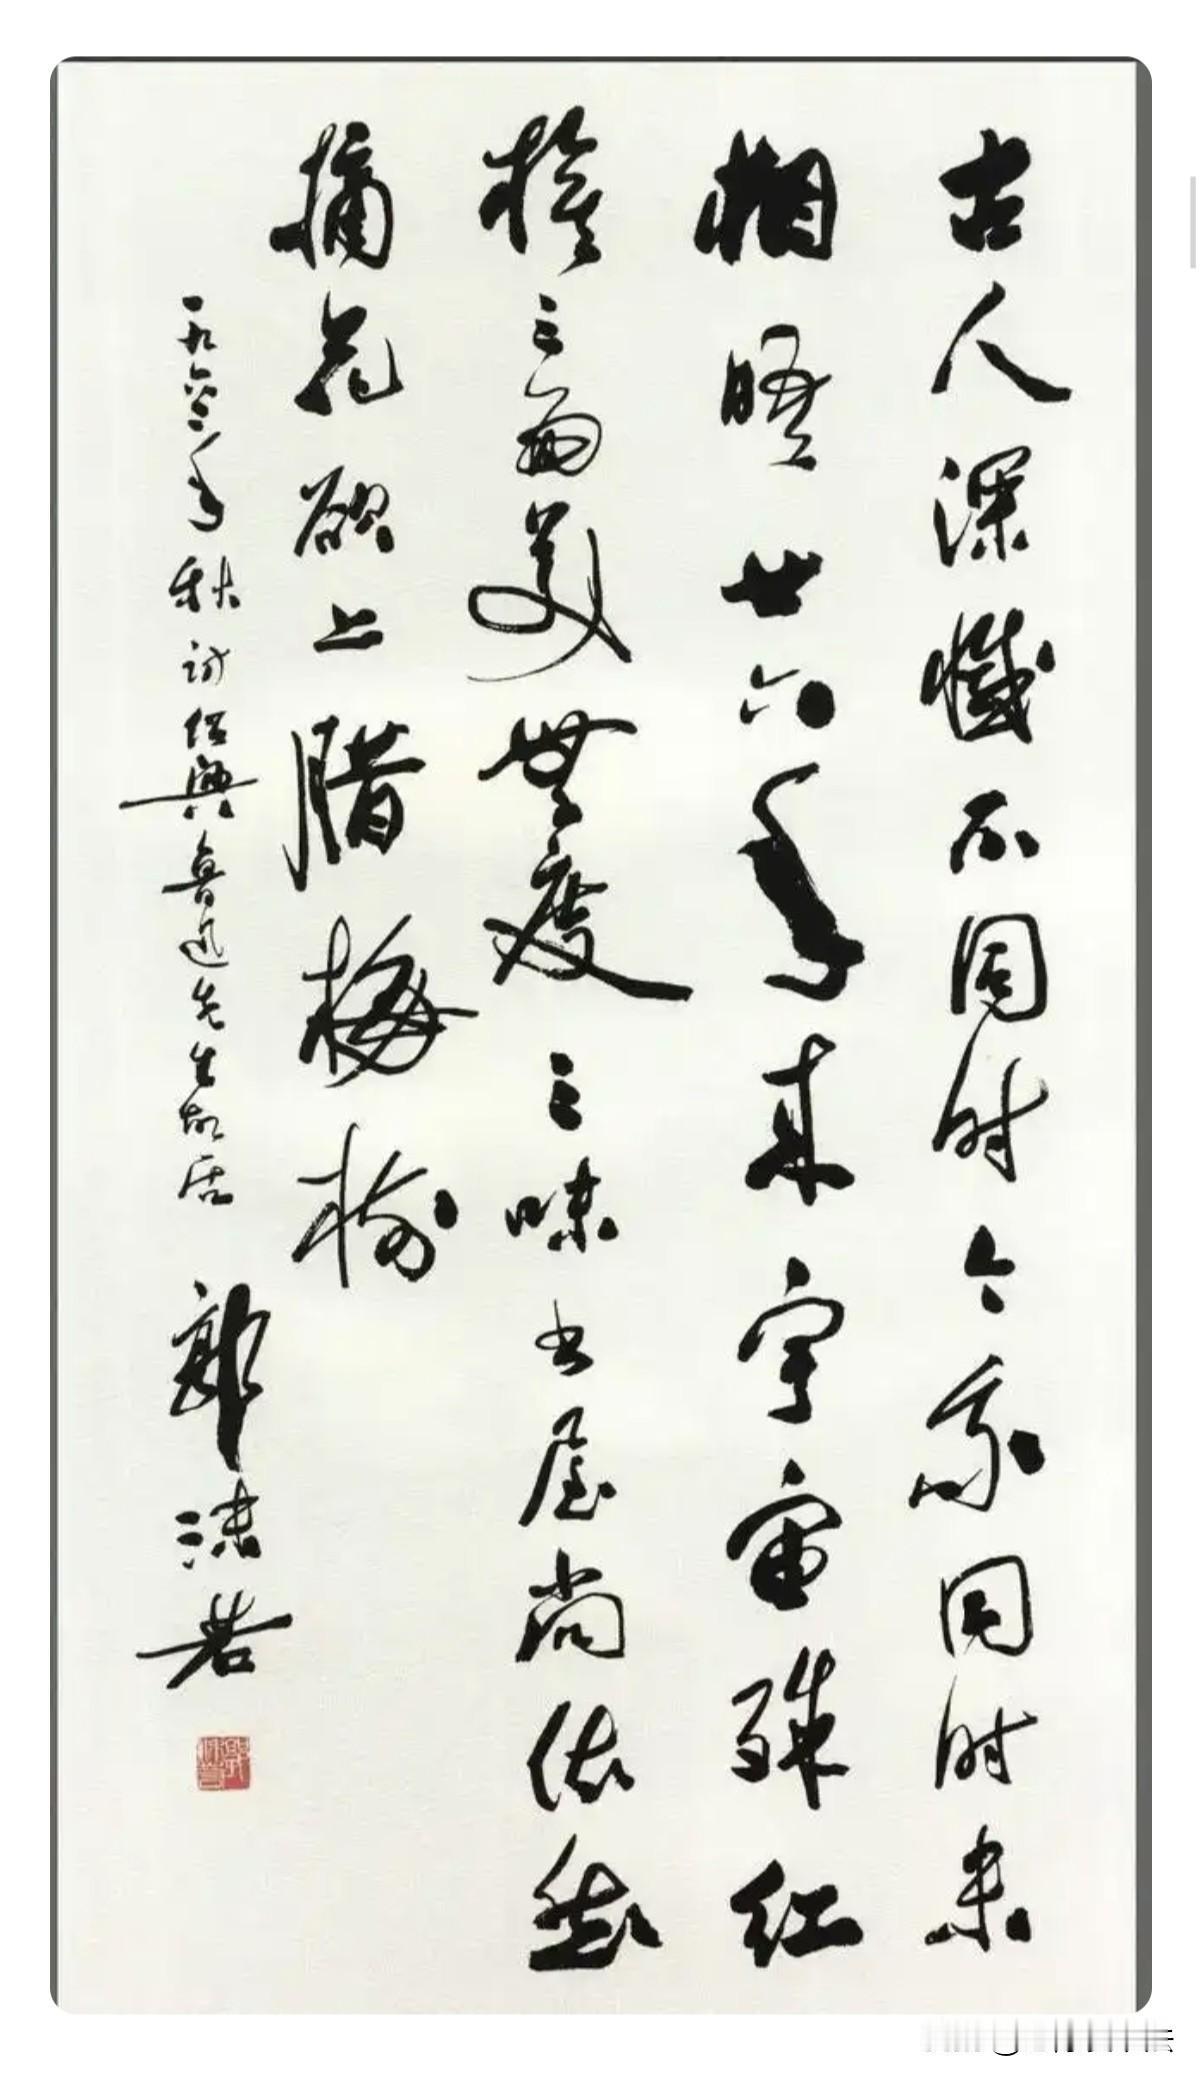 古人深憾不同时今我同时未
相晤廿六年来宇宙殊红
旗三面美無度三味书屋尚依然
摘花欲上腊梅树
一九六二年秋访绍興鲁迅先生故居 郭沫若